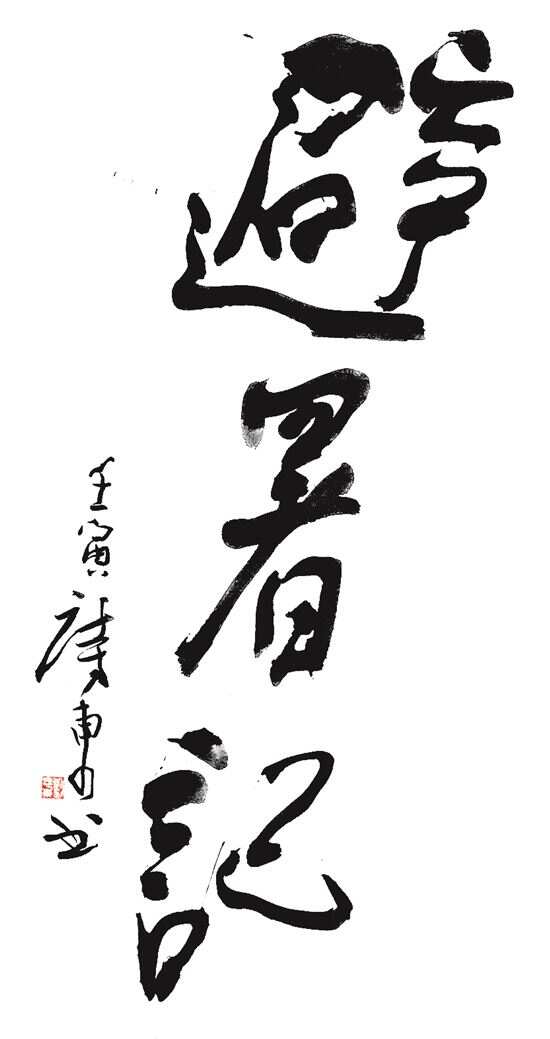 避暑記
壬寅
书